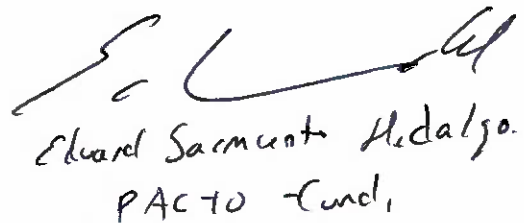 Eduard Sarmiento Hidalgo.
PACTO Cund,